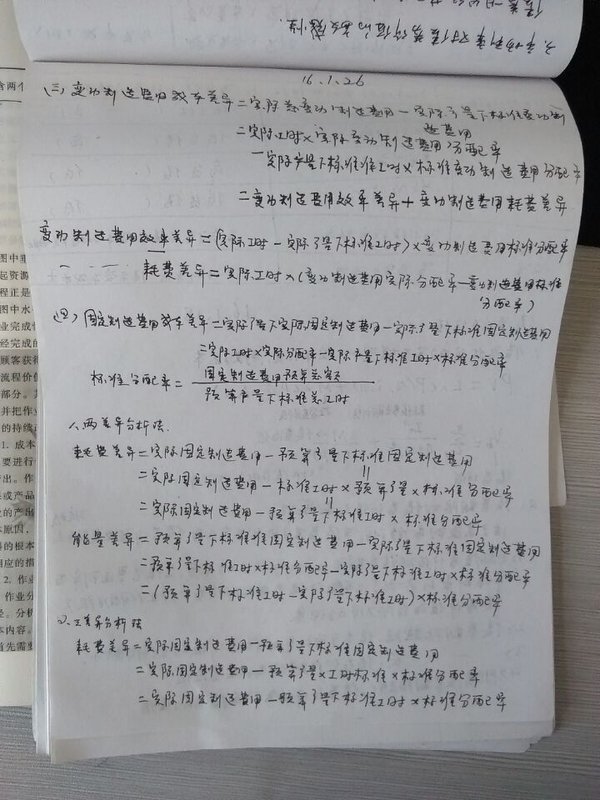 16.1.26
(三)变动制造费用效率差异=实际总变动制造费用-实际产量下标准变动制
造费用
=实际工时×实际变动制造费用分配率
-实际产量下标准工时×标准变动制造费用分配率
=变动制造费用效率差异+变动制造费用耗费差异
变动制造费用效率差异=(实际工时-实际产量下标准工时)×变动制造费用标准分配率
耗费差异=实际工时×(变动制造费用实际分配率-变动制造费用标准
分配率)
(四)固定制造费用效率差异=实际产量下实际固定制造费用-实际产量下标准固定制造费用
=实际工时×实际分配率-实际产量下标准工时×标准分配率
标准分配率=固定制造费用预算总额
预算产量下标准总工时
1.两差异分析法.
耗费差异=实际固定制造费用-预算产量下标准固定制造费用
=实际固定制造费用-标准工时×预算产量×标准分配率
=实际固定制造费用-预算产量下标准工时×标准分配率
能量差异=预算产量下标准固定制造费用-实际产量下标准固定制造费用
=预算产量下标准工时×标准分配率-实际产量下标准工时×标准分配率
=(预算产量下标准工时-实际产量下标准工时)×标准分配率
2.三差异分析法
耗费差异=实际固定制造费用-预算产量下标准固定制造费用
=实际固定制造费用-预算产量×工时标准×标准分配率
=实际固定制造费用-预算产量下标准工时×标准分配率